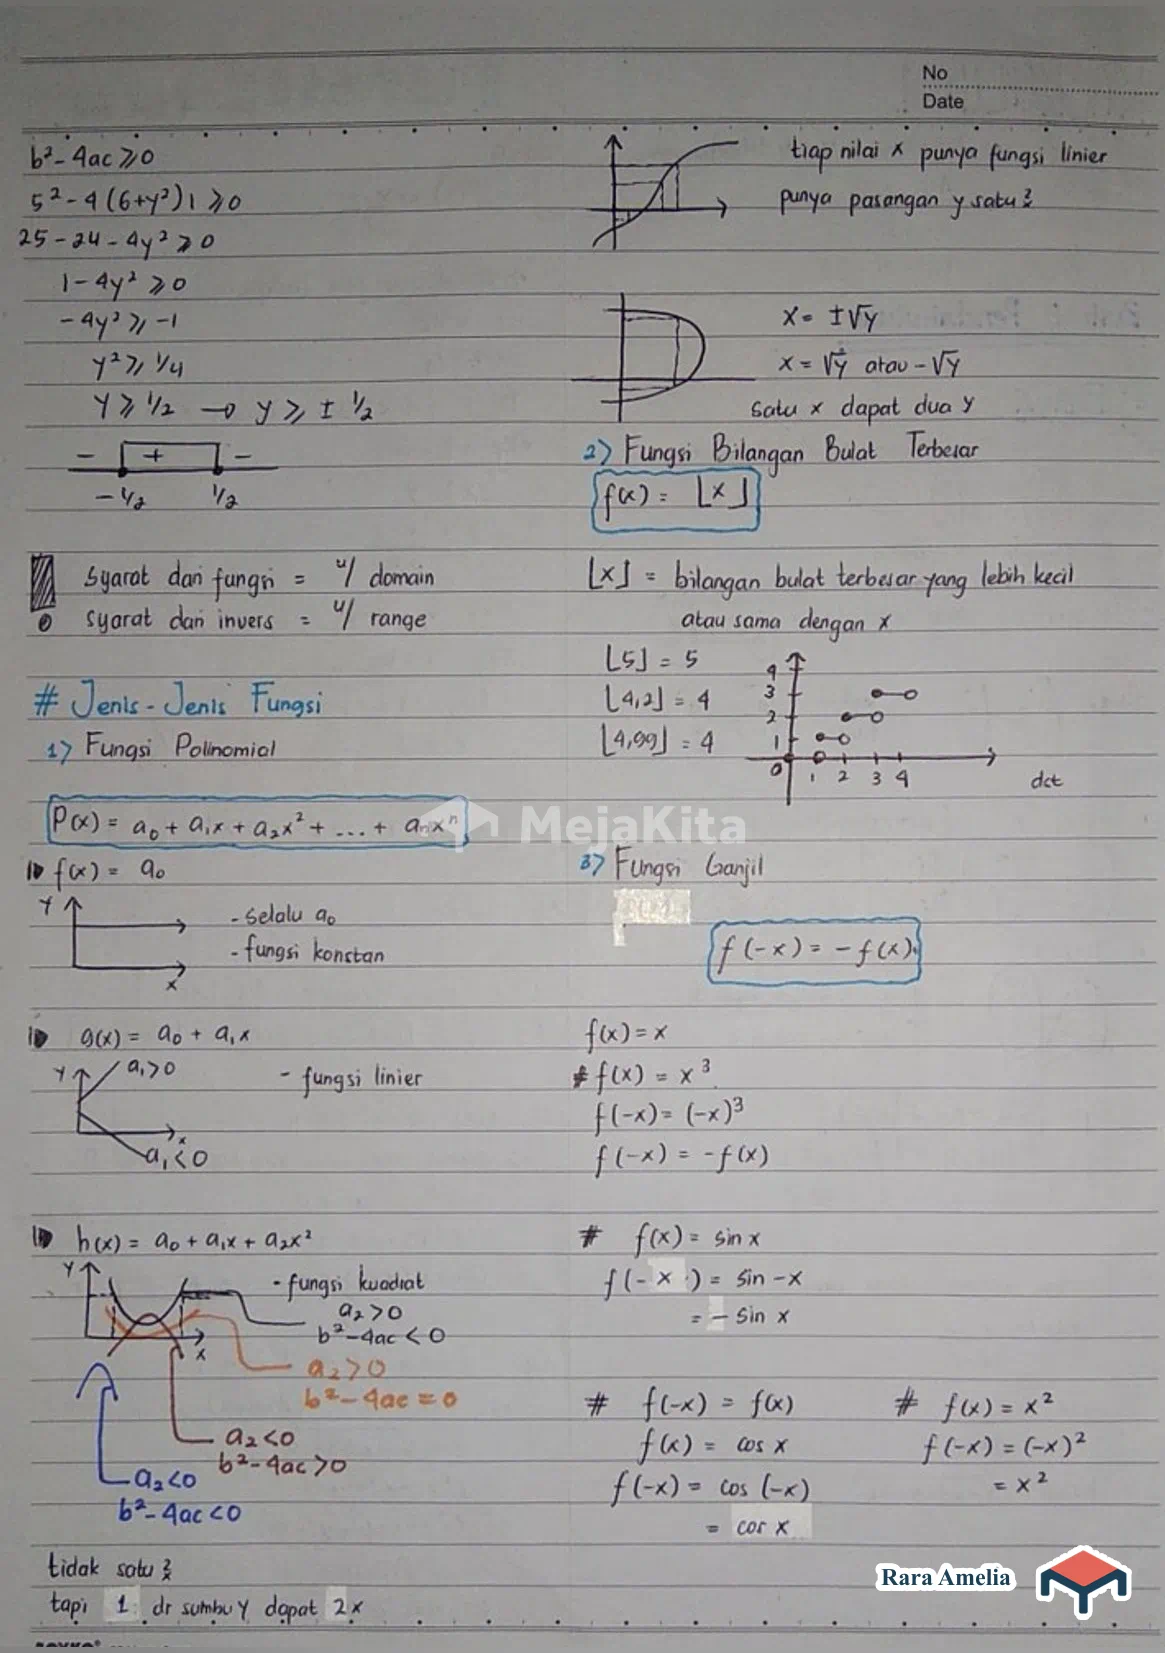 No
Date
b² - 4ac ⩾ 0
5² - 4 (6+y²) 1 ⩾ 0
25 - 24 - 4y² ⩾ 0
1 - 4y² ⩾ 0
- 4y² ⩾ -1
y² ⩾ 1/4
y ⩾ 1/2 → y ⩾ ± 1/2
- + -
-1/2 1/2
syarat dari fungsi = u/ domain
syarat dari invers = u/ range
# Jenis-Jenis Fungsi
1) Fungsi Polinomial
P(x) = a₀ + a₁x + a₂x² + ... + aₙxⁿ
f(x) = a₀
Y
x
- selalu a₀
- fungsi konstan
g(x) = a₀ + a₁x
Y
a₁>0
x
a₁<0
- fungsi linier
h(x) = a₀ + a₁x + a₂x²
Y
x
- fungsi kuadrat
a₂>0
b²-4ac < 0
a₂>0
b²-4ac = 0
a₂<0
b²-4ac>0
a₂<0
b²-4ac<0
tidak satu 2
tapi 1 dr sumbu y dapat 2x
tiap nilai x punya fungsi linier
punya pasangan y satu 2
x = ±√y
x = √y atau -√y
satu x dapat dua y
2) Fungsi Bilangan Bulat Terbesar
f(x) = ⌊x⌋
⌊x⌋ = bilangan bulat terbesar yang lebih kecil
atau sama dengan x
⌊5⌋ = 5
⌊4,2⌋ = 4
⌊4,99⌋ = 4
4
3
2
1
0 1 2 3 4
dst
3) Fungsi Ganjil
f(-x) = -f(x)
f(x) = x
# f(x) = x³
f(-x) = (-x)³
f(-x) = -f(x)
# f(x) = sin x
f(-x) = sin -x
= - sin x
# f(-x) = f(x)
f(x) = cos x
f(-x) = cos (-x)
= cos x
# f(x) = x²
f(-x) = (-x)²
= x²
MejaKita
Rara Amelia